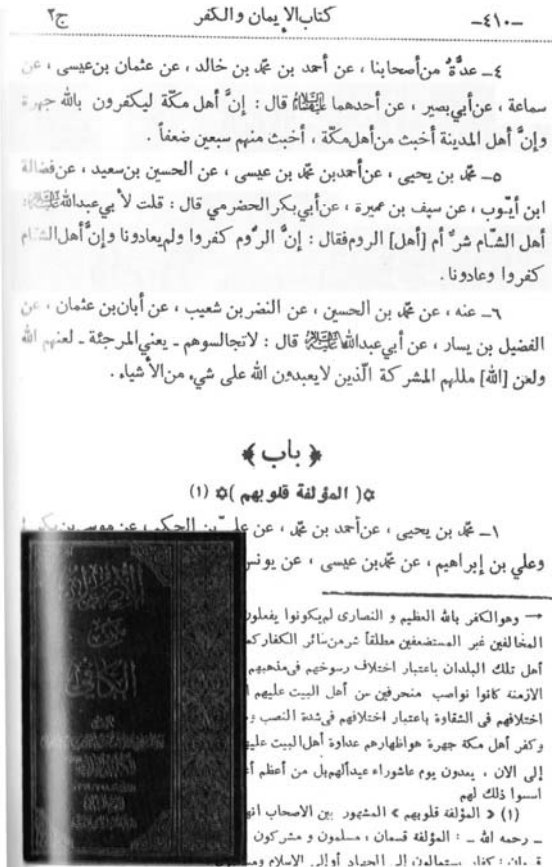 ج٢ كتاب الإيمان والكفر -٤١٠-
٤_ عدَّةٌ من أصحابنا ، عن أحمد بن محمّد بن خالد ، عن عثمان بن عيسى ، عن
سماعة ، عن أبي بصير ، عن أحدهما عليهما السلام قال : إنَّ أهل مكّة ليكفرون بالله جهرة
وإنَّ أهل المدينة أخبث من أهل مكّة ، أخبث منهم سبعين ضعفاً .
٥_ محمّد بن يحيى ، عن أحمد بن محمّد بن عيسى ، عن الحسين بن سعيد ، عن فضالة
ابن أيّوب ، عن سيف بن عميرة ، عن أبي بكر الحضرمي قال : قلت لأبي عبدالله عليه السلام :
أهل الشّام شرٌّ أم [أهل] الروم فقال : إنَّ الرُّوم كفروا ولم يعادونا وإنَّ أهل الشّام
كفروا وعادونا .
٦_ عنه ، عن محمّد بن الحسين ، عن النضر بن شعيب ، عن أبان بن عثمان ، عن
الفضيل بن يسار ، عن أبي عبدالله عليه السلام قال : لا تجالسوهم _ يعني المرجئة _ لعنهم الله
ولعن [الله] مللهم المشركة الّذين لا يعبدون الله على شيء من الأشياء .
﴿ باب ﴾
☆( المؤلفة قلوبهم )☆ (١)
١_ محمّد بن يحيى ، عن أحمد بن محمّد ، عن عليّ بن الحكم ، عن موسى بن بكر
وعلي بن إبراهيم ، عن محمّد بن عيسى ، عن يونس
→ وهو الكفر بالله العظيم و النصارى لم يكونوا يفعلون
المخالفين غير المستضعفين مطلقاً شر من سائر الكفار كما
أهل تلك البلدان باعتبار اختلاف رسوخهم في مذهبهم
الازمنة كانوا نواصب منحرفين عن أهل البيت عليهم
اختلافهم في الشقاوة باعتبار اختلافهم في شدة النصب و
وكفر أهل مكة جهرة هو اظهارهم عداوة أهل البيت عليهم
إلى الان ، يعدون يوم عاشوراء عيداً لهم بل من أعظم
اسسوا ذلك لهم
(١) « المؤلفة قلوبهم » المشهور بين الاصحاب انهم
_ رحمه الله _ : المؤلفة قسمان ، مسلمون و مشركون
الأصول من
الكافي